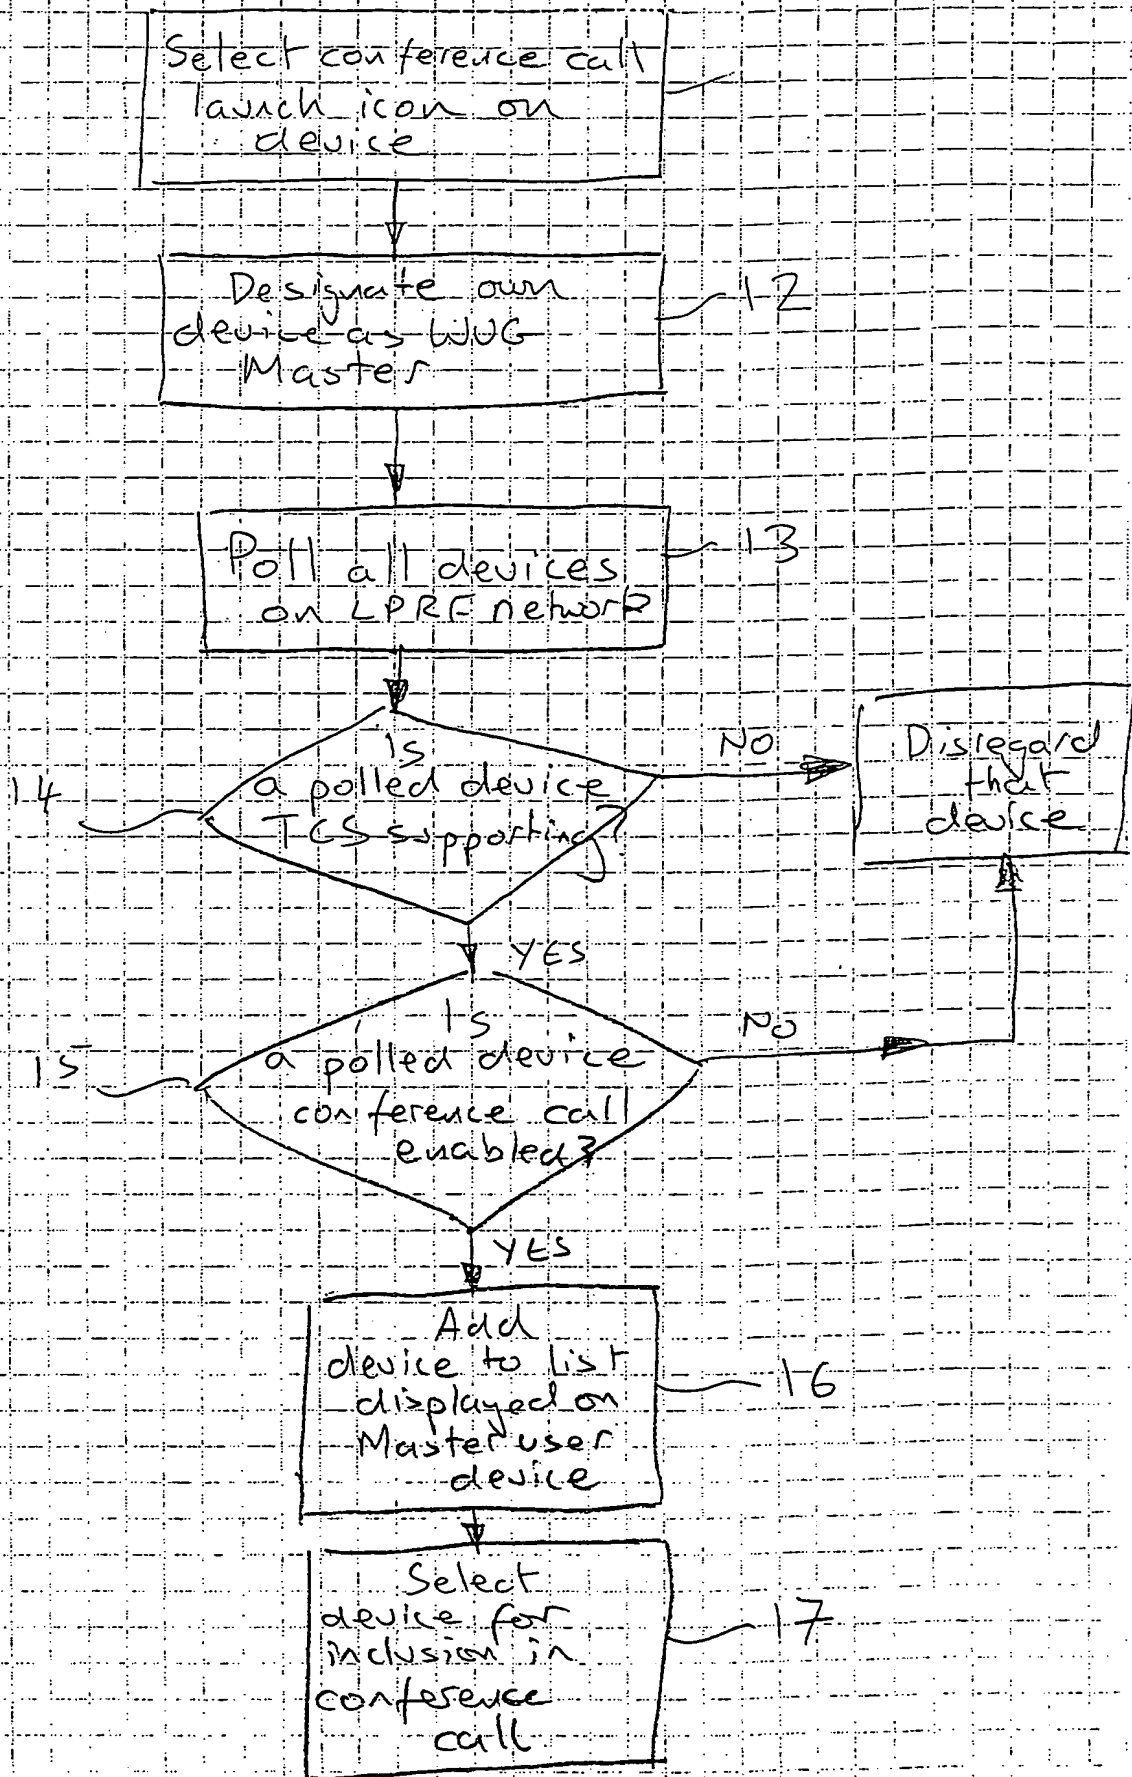 Select conference call
launch icon on
device
Designate own
device as WUG
Master
12
Poll all devices
on LPRF network
13
Is
a polled device
TCS supporting?
14
NO
Disregard
that
device
YES
Is
a polled device
conference call
enabled?
15
NO
YES
Add
device to list
displayed on
Master user
device
16
Select
device for
inclusion in
conference
call
17